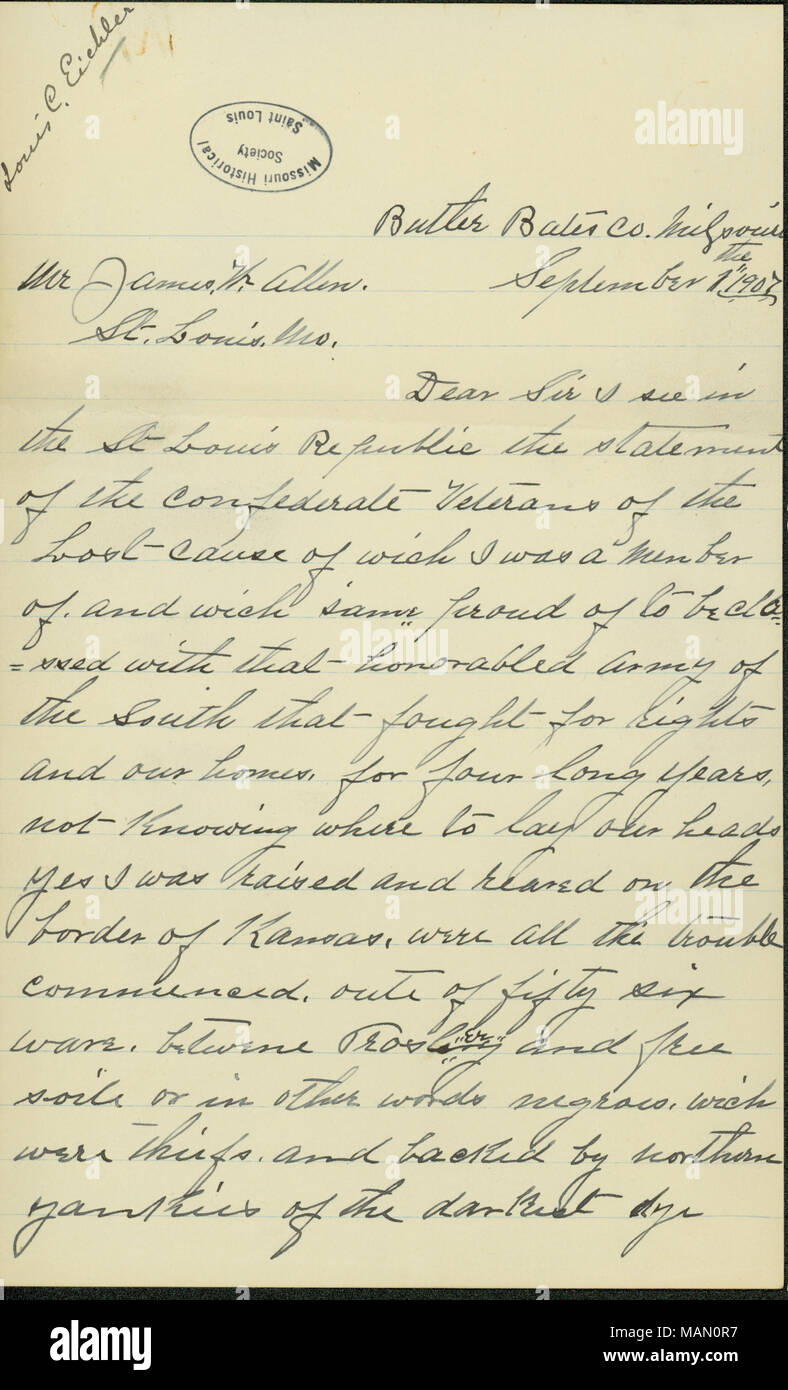 Louis C. Eichler
Missouri Historical
Society
Saint Louis
Butler Bates Co. Missouri
the
September 1" 1907
Mr James. W. Allen.
St. Louis. Mo.
Dear Sir I see in
the St Louis Republic the statement
of the Confederate Veterans of the
Lost cause of wich I was a Member
of. and wich "same" proud of to be cla=
=ssed with that honorabled army of
the South that fought for rights
and our homes. for four long years,
not Knowing where to lay our heads
yes I was raised and reared on the
border of Kansas. were all the trouble
commenced. oute of fifty six
ware. betwene and free
soile or in other words negroes. wich
were thiefs. and backed by northern
yankies of the darkest dye
alamy
Image ID: MAN0R7
www.alamy.com